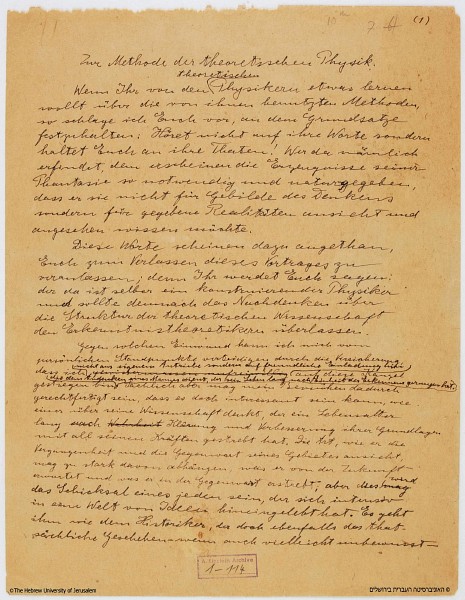 10th 7 (1)
Zur Methode der theoretischen Physik.
theoretischen
Wenn Ihr von den Physikern etwas lernen
wollt über die von ihnen benutzten Methoden,
so schlage ich Euch vor, an dem Grundsatze
festzuhalten: Höret nicht auf ihre Worte sondern
haltet Euch an ihre Thaten! Wer da nämlich
erfindet, dem erscheinen die Erzeugnisse seiner
Phantasie so notwendig und naturgegeben,
dass er sie nicht für Gebilde des Denkens
sondern für gegebene Realitäten ansieht und
angesehen wissen möchte.
Diese Worte scheinen dazu angethan,
Euch zum Verlassen dieses Vortrages zu
veranlassen; denn Ihr werdet Euch sagen:
der da ist selber ein konstruierender Physiker
und sollte demnach das Nachdenken über
die Struktur der theoretischen Wissenschaft
den Erkenntnistheoretikern überlassen.
Gegen solchen Einwand kann ich mich vom
persönlichen Standpunkte verteidigen durch die Versicherung
nicht aus eigenem Antriebe sondern auf freundliche Einladung hin
dass ich auf diese Kanzel
die dem Angedenken eines Mannes dient, der sein Leben lang um Einheit der Erkenntnis gerungen hat,
gestiegen bin. Sachlich aber mag mein Unternehmen dadurch
gerechtfertigt sein, dass es doch interessant sein kann, wie
einer über seine Wissenschaft denkt, der ein Lebensalter
lang nach Klärung und Verbesserung ihrer Grundlagen
mit all seinen Kräften gestrebt hat. Die Art, wie er die
Vergangenheit und die Gegenwart seines Gebietes ansieht,
mag zu stark davon abhängen, was er von der Zukunft
erwartet und was er in der Gegenwart erstrebt; aber dies
das Schicksal eines jeden sein, der sich intensiv
in seine Welt von Ideen hineingelebt hat. Es geht
ihm wie dem Historiker, der doch ebenfalls das that-
sächliche Geschehen, wenn auch vielleicht unbewusst-
1-114
© The Hebrew University of Jerusalem
© האוניברסיטה העברית בירושלים